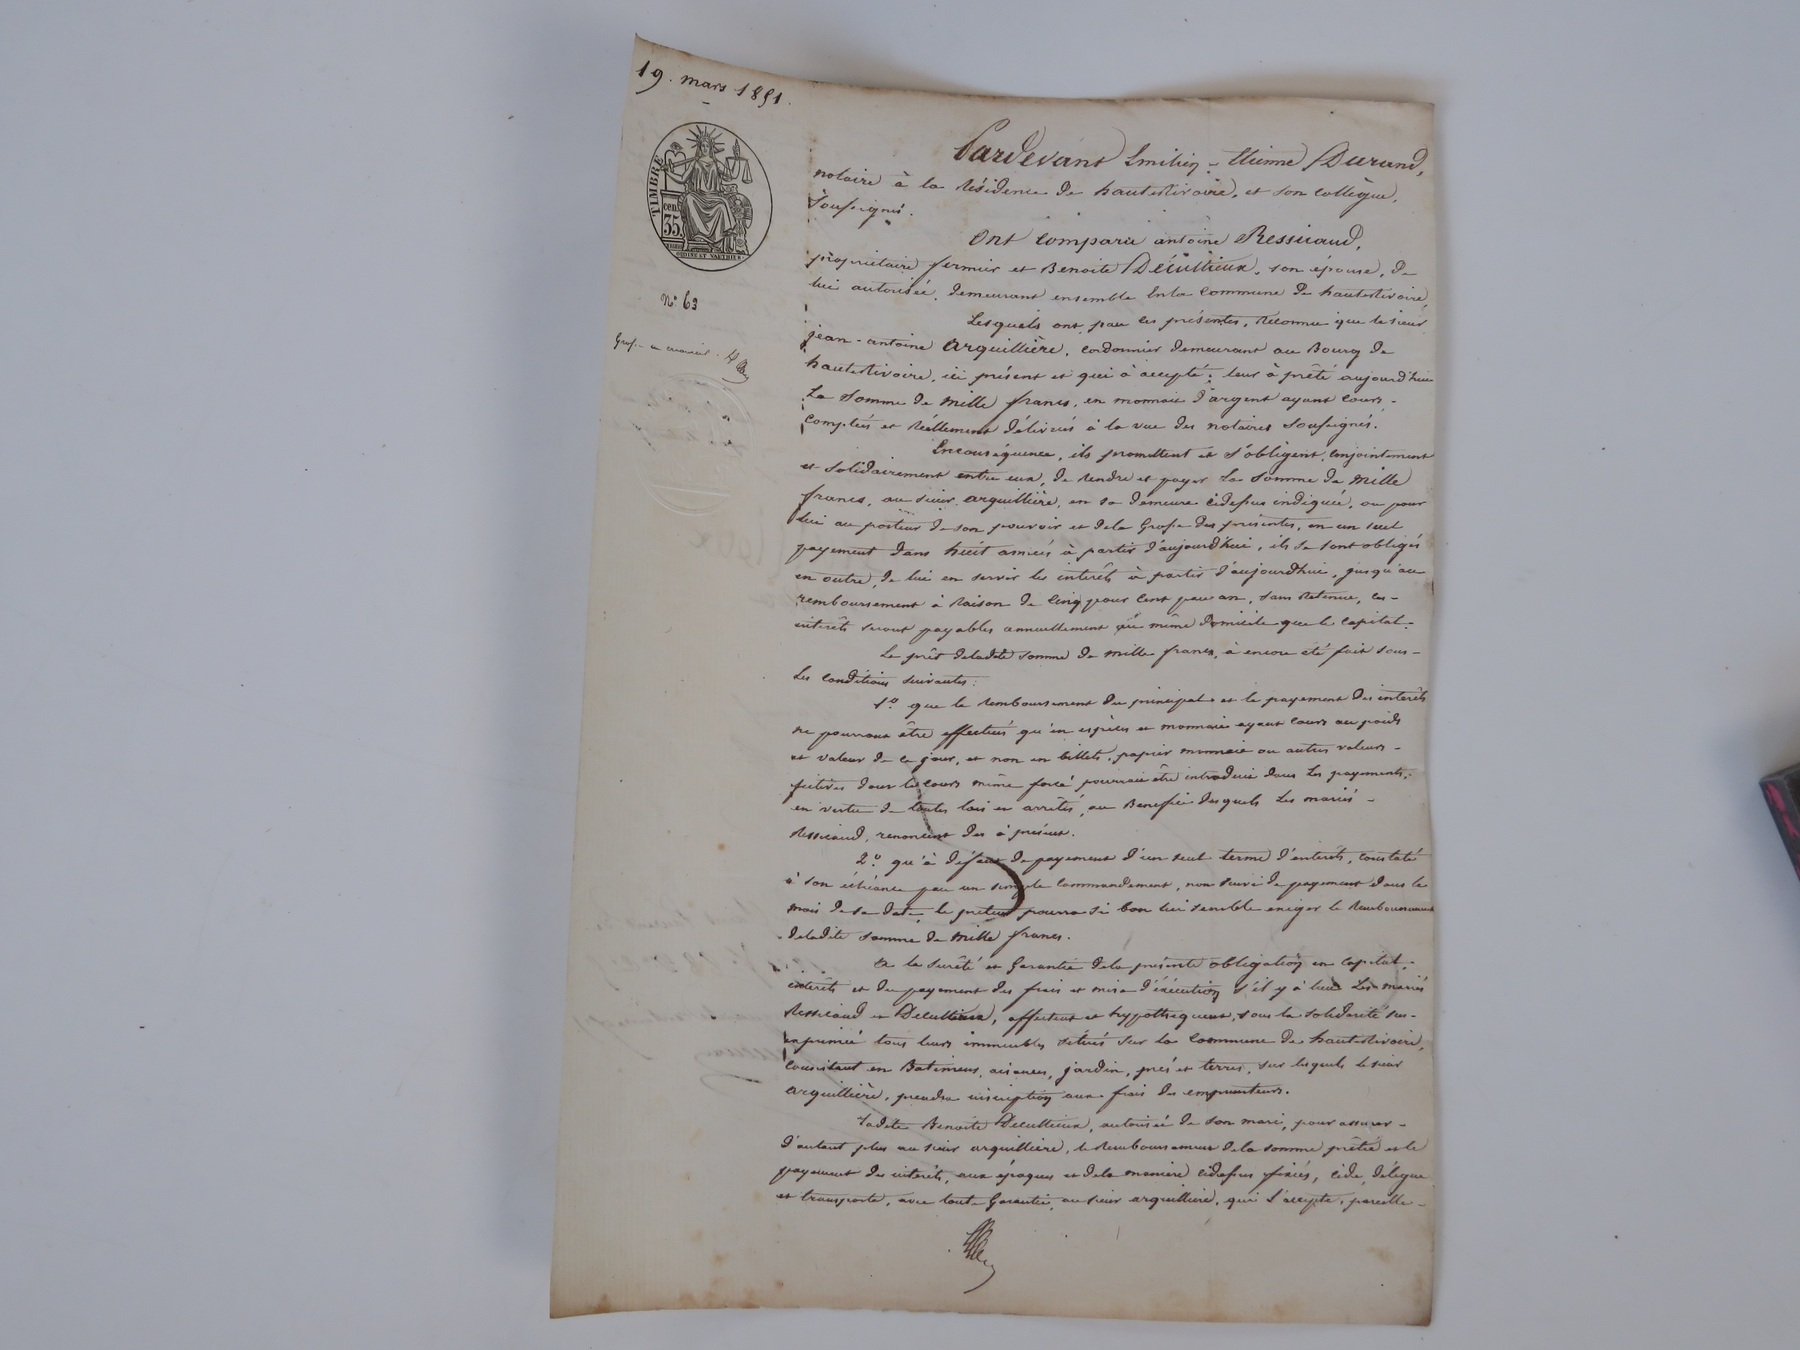 19. mars 1851.
TIMBRE
cen. 35.
N° 63
Pardevant Emilien-Etienne Durand,
notaire à la résidence de hauterivoire, et son collègue,
Soussignés.
Ont Comparu antoine Ressicaud,
propriétaire fermier et Benoite Décultieux, son épouse, de
lui autorisée, demeurant ensemble En la Commune de hauterivoire,
Lesquels ont par ces présentes, Reconnu que le sieur
jean-antoine Arquillière, cordonnier demeurant au Bourg de
hauterivoire, ici présent et qui à accepté; leur à prêté aujourd'hui
La Somme de Mille francs, en monnaie d'argent ayant Cours-
Comptés et Réellement délivrés à la vue des notaires Soussignés.
En conséquence, ils promettent et s'obligent, conjointement
et solidairement entre eux, de rendre et payer La Somme de Mille
francs, au sieur arquillière, en sa demeure cidessus indiquée, ou pour
lui au porteur de son pouvoir et dela Grosse des présentes, en un seul
payement dans huit années à partir d'aujourd'hui, ils se sont obligés
en outre, de lui en servir les intérêts à partir d'aujourd'hui, jusqu'au
remboursement à Raison de Cinq pour Cent par an, sans Retenue, ces-
intérêts seront payables annuellement au même domicile que le Capital.
Le prêt deladite somme de mille francs, à encore été fait sous-
Les Conditions suivantes:
1° que le Remboursement du principal et le payement des intérêts
ne pourront être effectués qu'en espèces et monnaies ayant cours au poids
et valeur de ce jour, et non en billets, papier monnaie ou autres valeurs-
fictives dont le cours même forcé pourrait être introduit dans Les payements,
en vertu de toutes lois et arrêtés, au Benefice desquels Les mariés-
Ressicaud, renoncent des à présent.
2° qu'à défaut de payement d'un seul terme d'intérêts, constaté
à son échéance par un simple Commandement, non suivi de payement dans le
mois de sa date, le prêteur pourra si bon lui semble exiger le Remboursement
deladite somme de Mille francs.
a la sureté et Garantie dela présente obligation en capital,
intérêts et du payement des frais et mise d'éxécution s'il y à lieu Les mariés
Ressicaud et Décultieux, affectent et hypothèquent, sous la solidarité sus-
exprimée tous leurs immeubles situés sur La Commune de hauterivoire,
Consistant en Batiments, aisances, jardin, prés et terres, sur lesquels le sieur
arquillière, prendra inscription aux frais des emprunteurs.
Ladite Benoite Décultieux, autorisée de son mari, pour assurer-
d'autant plus au sieur arquillière, le Remboursement dela somme prêtée et le
payement des intérêts, aux époques et dela maniere cidessus fixées, cède, délègue
et transporte, avec toute Garantie, au sieur arquillière, qui l'accepte, pareille-